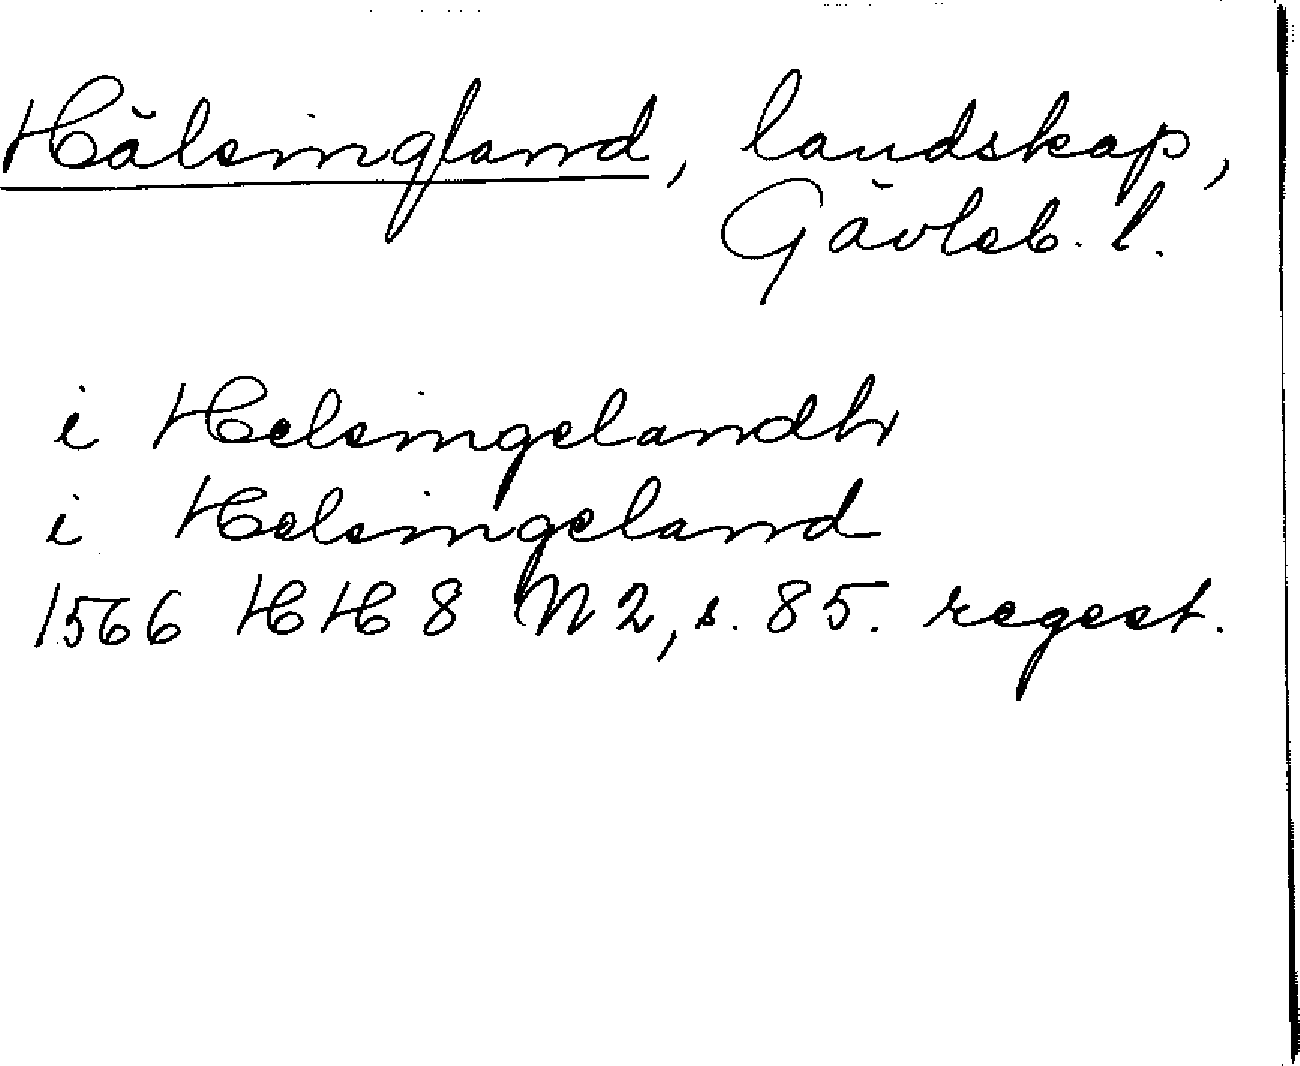 Hälsingland, landskap,
Gävleb. l.
i Helsingelandh
i Helsingeland
1566 HH 8 N 2, s. 85. regest.